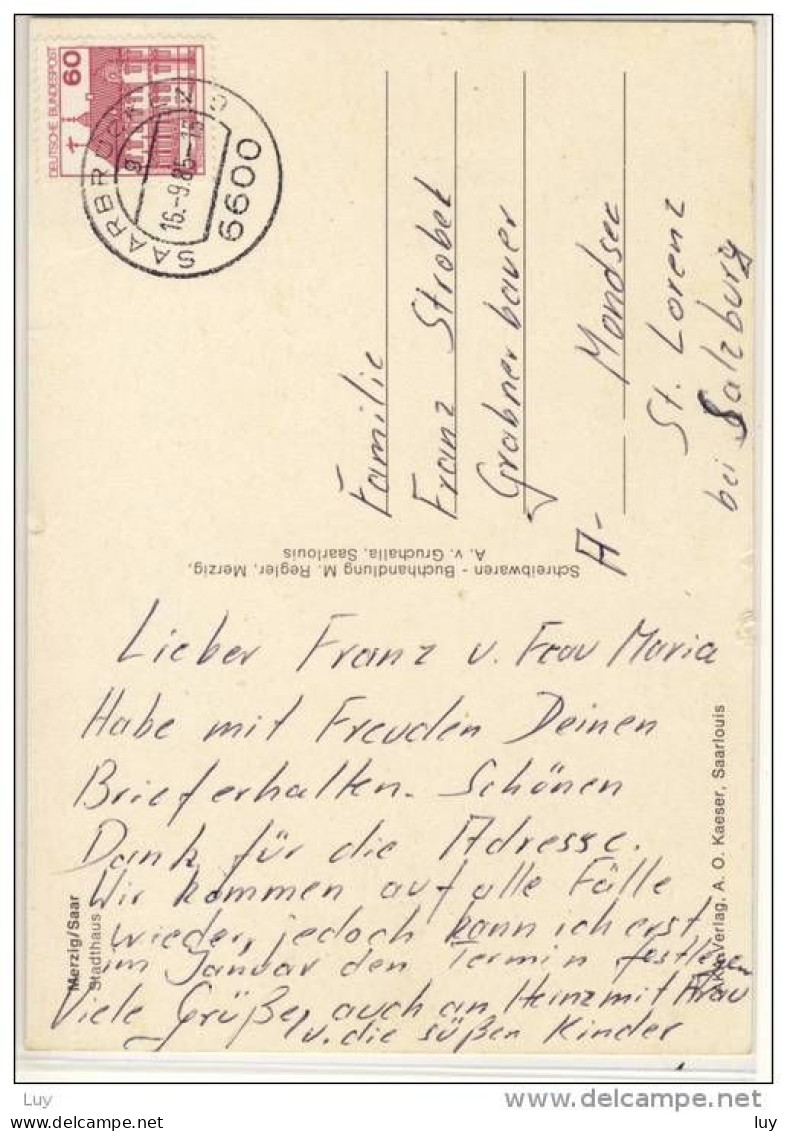 DEUTSCHE BUNDESPOST
60
SAARBRÜCKEN
16.-9.85-15
6600
Familie
Franz Strobel
Grabnerbauer
A- Mondsee
St. Lorenz
bei Salzburg
Schreibwaren - Buchhandlung M. Regler, Merzig,
A. v. Gruchalla, Saarlouis
Lieber Franz u. Frau Maria
Habe mit Freuden Deinen
Brief erhalten. Schönen
Dank für die Adresse.
Wir kommen auf alle Fälle
wieder, jedoch kann ich erst
im Januar den Termin festlegen
Viele Grüße, auch an Heinz mit Frau
u. die süßen Kinder
Merzig/Saar
Stadthaus
Verlag, A. O. Kaeser, Saarlouis
Luy
delcampe.net
luy